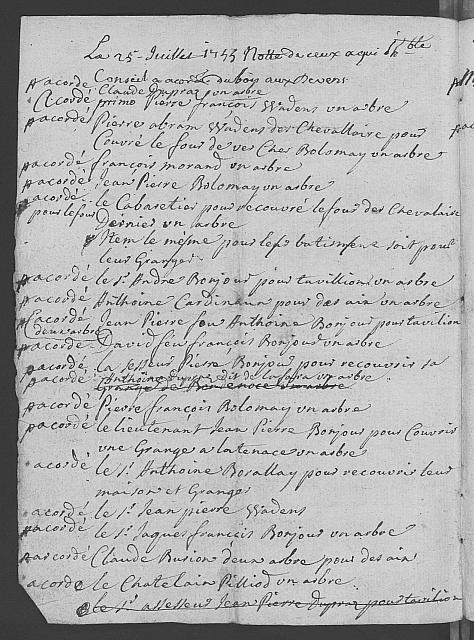 Le 25 Juillet 1753 Notte de ceux a qui
acordé Conseil a acordé du bois aux Devers
Claude Dupraz un arbre
Acordé primo Pierre françois Wadens un arbre
acordé Pierre abram Wadens des Chevallaire pour
Couvrè le four de ver Ches Bolomay un arbre
acordé françois morand un arbre
acordé Jean Pierre Bolomay un arbre
acordé le Cabaretier pour recouvré le four des Chevalaire
pour le four Dernier un arbre
Item le mesme pour les butiments soit pour
leur Granges
acordé le Sr André Bonjour pour tavillion un arbre
acordé Anthoine Cardinaux pour des ais un arbre
acordé Jean Pierre feu Anthoine Bonjour pour tavilion
deux arbre
acordé David feu françois Bonjour un arbre
acordé la sesseur Pierre Bonjour pour recouvrir sa
acordé Anthoine Dupraz dit de la un arbre
Grange de un arbre
acordé Pierre françois Bolomay un arbre
acordé le lieutenant Jean Pierre Bonjour pour Couvrir
une Grange a la tenace un arbre
acordé le Sr Anthoine Borallay pour recouvrir leur
maison et Granges
acordé le Sr Jean pierre Wadens
acordé le Sr Jaques françois Bonjour un arbre
acordé Claude Burion deux arbre pour des ais
acordé le Chatelain Pilliod un arbre
le Sr assesseur Jean Pierre Dupraz pour tavilion